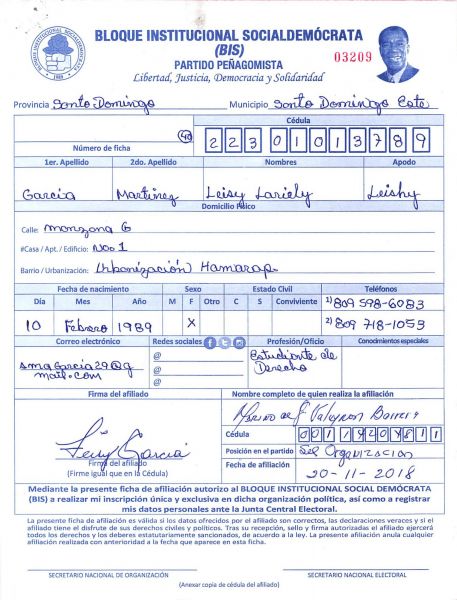 BLOQUE INSTITUCIONAL SOCIALDEMÓCRATA
(BIS)
PARTIDO PEÑAGOMISTA
Libertad, Justicia, Democracia y Solidaridad
03209
BLOQUE INSTITUCIONAL SOCIALDEMÓCRATA
1989
Provincia Santo Domingo Municipio Santo Domingo Este
Cédula
40 22301013789
Número de ficha
1er. Apellido 2do. Apellido Nombres Apodo
Garcia Martinez Leisy Lariely Leishy
Domicilio Físico
Calle: manzana 6
#Casa / Apt. / Edificio: No 1
Barrio / Urbanización: Urbanización Hamarap
Fecha de nacimiento Sexo Estado Civil Teléfonos
Día Mes Año M F Otro C S Conviviente 1) 809 598-6083
10 Febrero 1989 X 2) 809 718-1053
Correo electrónico Redes sociales Profesión/Oficio Conocimientos especiales
smagarcia29@g
mail.com
@
@
@
Estudiante de
Derecho
Firma del afiliado Nombre completo de quien realiza la afiliación
Garcia
Firma del afiliado
(Firme igual que en la Cédula)
Cédula
Posición en el partido Organizacion
Fecha de afiliación 20-11-2018
Mediante la presente ficha de afiliación autorizo al BLOQUE INSTITUCIONAL SOCIAL DEMÓCRATA
(BIS) a realizar mi inscripción única y exclusiva en dicha organización política, así como a registrar
mis datos personales ante la Junta Central Electoral.
La presente ficha de afiliación es válida si los datos ofrecidos por el afiliado son correctos, las declaraciones veraces y si el
afiliado tiene el disfrute de sus derechos civiles y políticos. Tras su recepción, sello y firma autorizadas el afiliado ejercerá
todos los derechos y los deberes estatutariamente sancionados, de acuerdo a la ley. La presente afiliación anula cualquier
afiliación realizada con anterioridad a la fecha que aparece en esta ficha.
SECRETARIO NACIONAL DE ORGANIZACIÓN SECRETARIO NACIONAL ELECTORAL
(Anexar copia de cédula del afiliado)